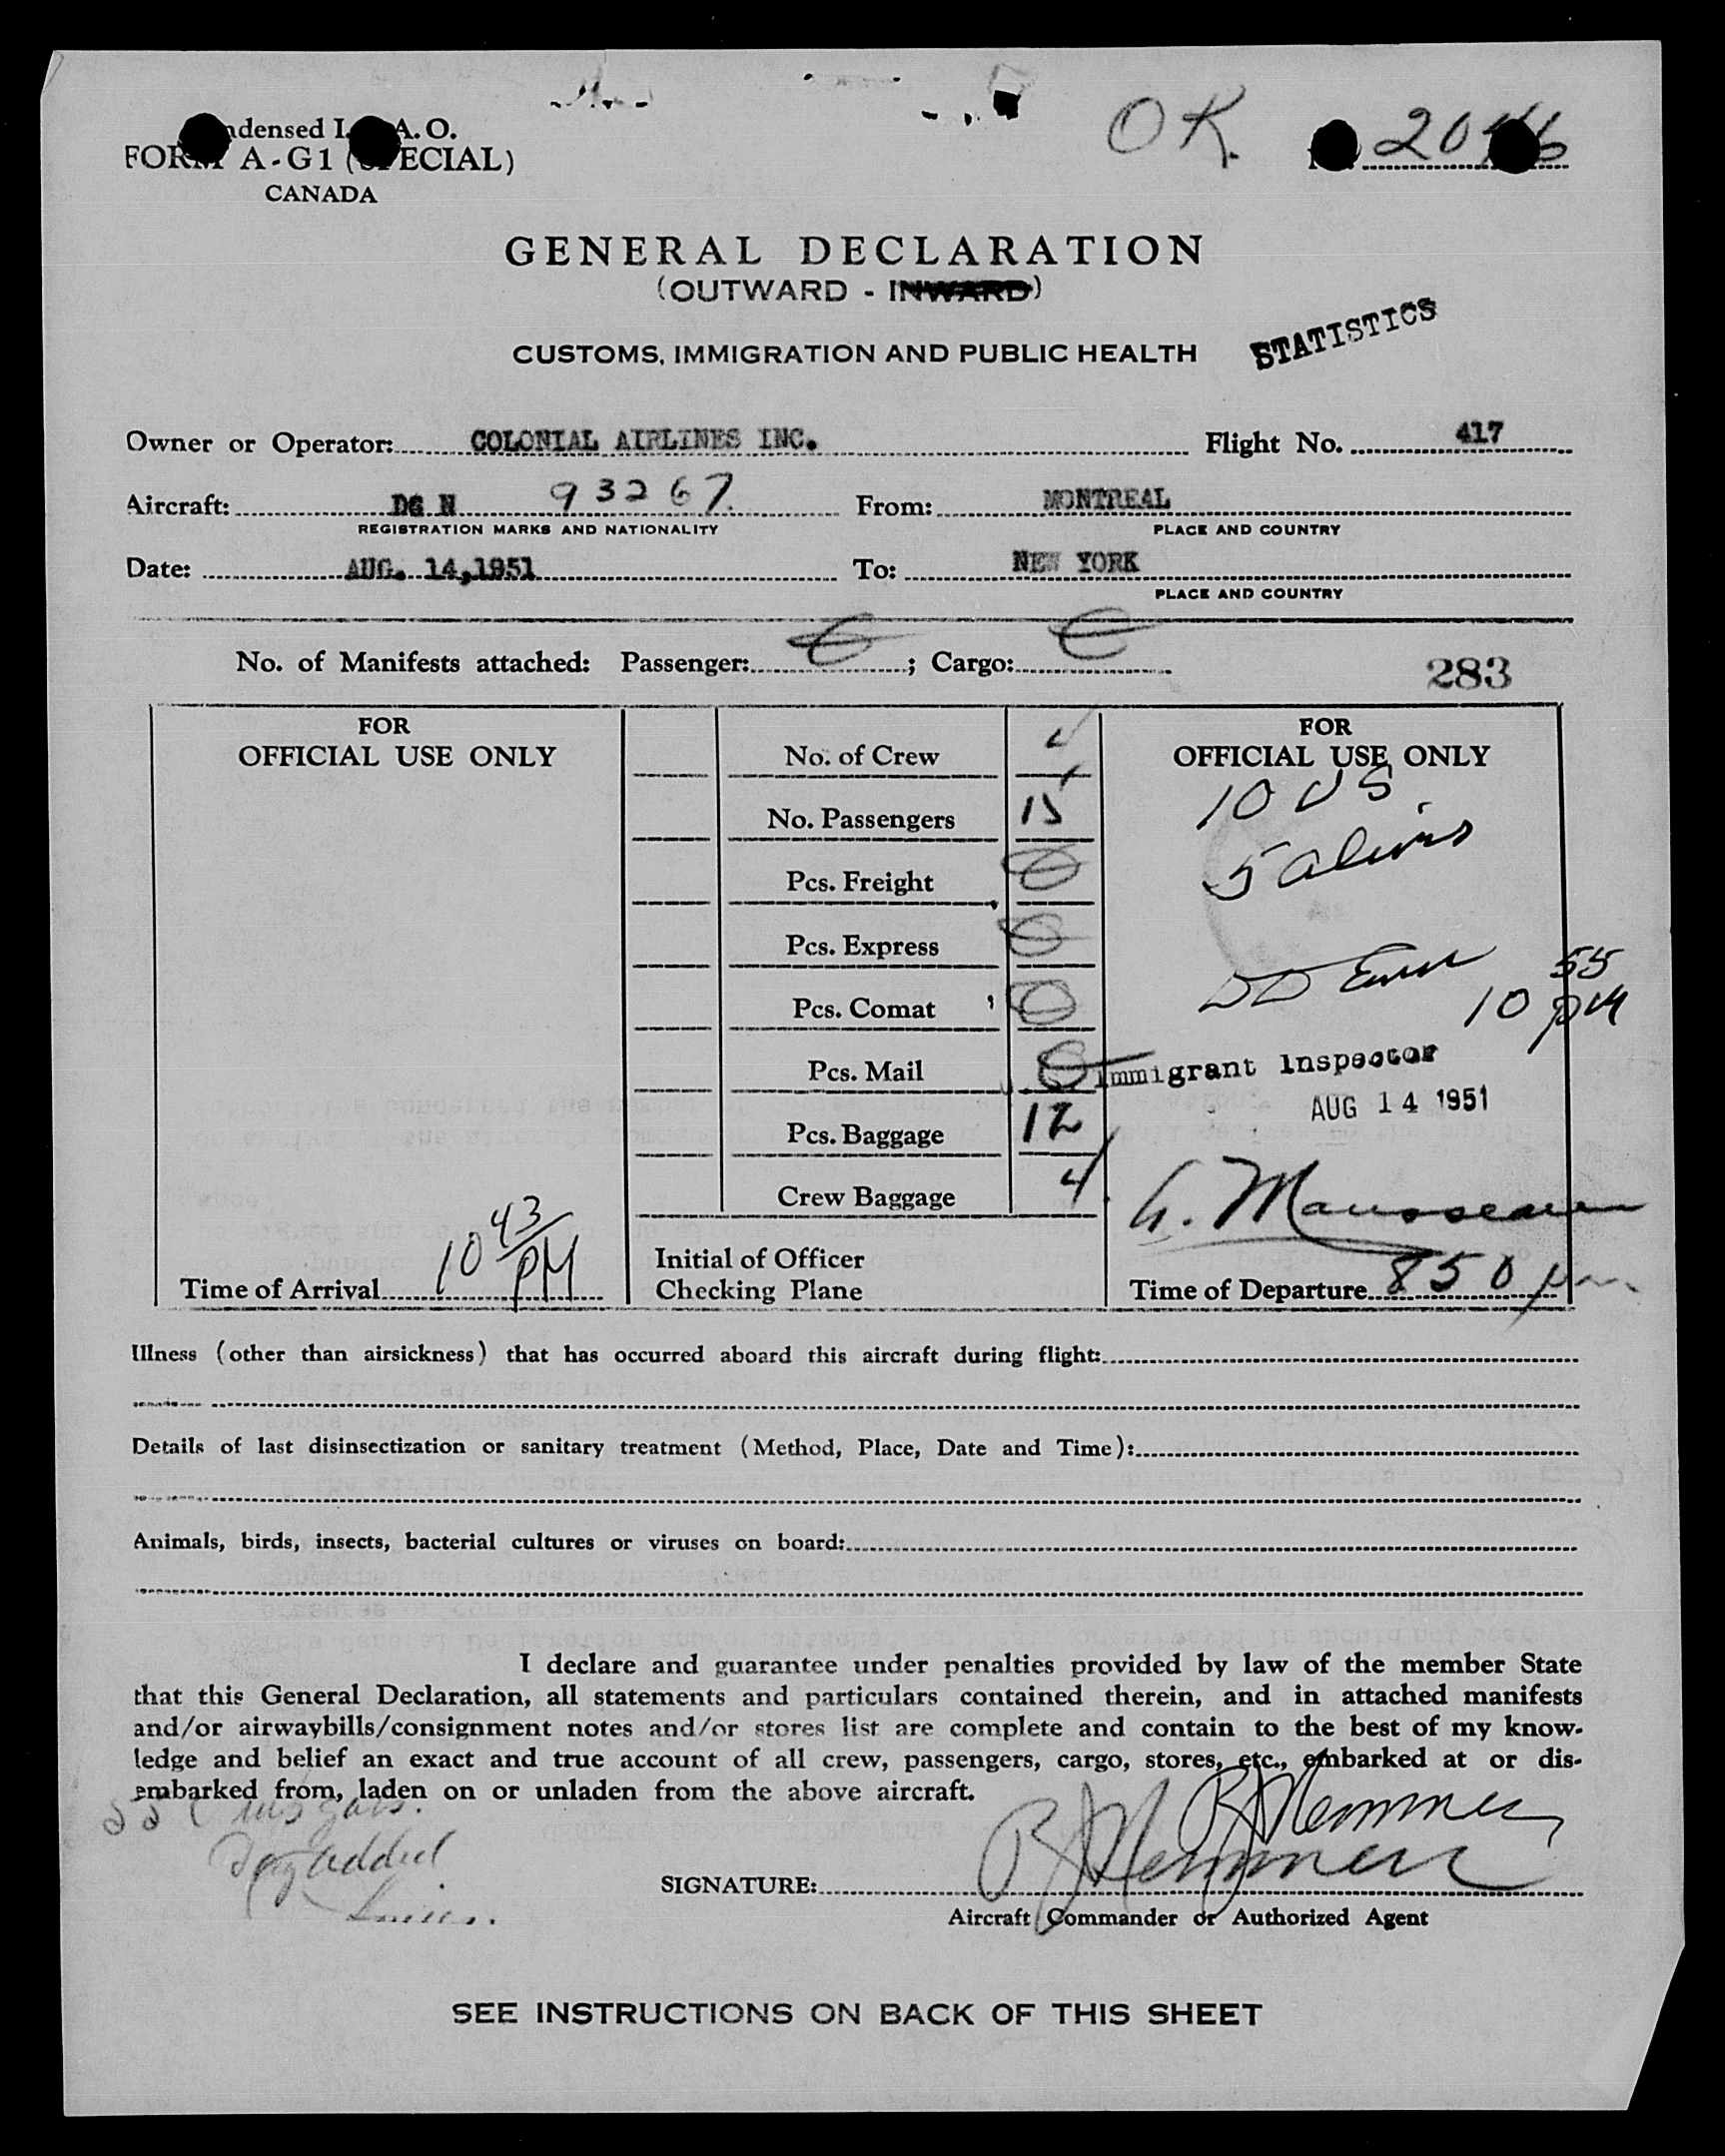 OK. 20
densed I. A.O.
FORM A-G1 (SPECIAL)
CANADA
GENERAL DECLARATION
(OUTWARD - INWARD)
STATISTICS
CUSTOMS, IMMIGRATION AND PUBLIC HEALTH
Owner or Operator: COLONIAL AIRLINES INC. Flight No. 417
Aircraft: DG N 93267. From: MONTREAL
REGISTRATION MARKS AND NATIONALITY PLACE AND COUNTRY
Date: AUG. 14,1951 To: NEW YORK
PLACE AND COUNTRY
No. of Manifests attached: Passenger: ; Cargo:
283
FOR
OFFICIAL USE ONLY
Time of Arrival 10 43 PM
No. of Crew 4
No. Passengers 15
Pcs. Freight 0
Pcs. Express 0
Pcs. Comat 0
Pcs. Mail 0
Pcs. Baggage 12
Crew Baggage 4
Initial of Officer
Checking Plane
FOR
OFFICIAL USE ONLY
10 US
5 aliens
10 55 PM
Immigrant Inspector
AUG 14 1951
Time of Departure 850 pm
Illness (other than airsickness) that has occurred aboard this aircraft during flight:
Details of last disinsectization or sanitary treatment (Method, Place, Date and Time):
Animals, birds, insects, bacterial cultures or viruses on board:
I declare and guarantee under penalties provided by law of the member State
that this General Declaration, all statements and particulars contained therein, and in attached manifests
and/or airwaybills/consignment notes and/or stores list are complete and contain to the best of my know-
ledge and belief an exact and true account of all crew, passengers, cargo, stores, etc., embarked at or dis-
embarked from, laden on or unladen from the above aircraft.
added
SIGNATURE:
Aircraft Commander or Authorized Agent
SEE INSTRUCTIONS ON BACK OF THIS SHEET